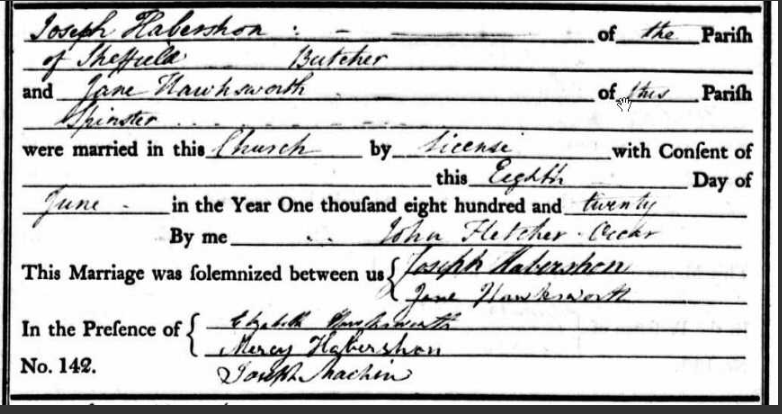 Joseph Habershon of the Pariſh
of Sheffield Butcher
and Jane Hawksworth of this Pariſh
Spinster
were married in this Church by License with Conſent of
this Eighth Day of
June in the Year One thouſand eight hundred and twenty
By me John Fletcher
This Marriage was ſolemnized between us { Joseph Habershon
Jane Hawksworth
In the Preſence of { Elizabeth Hawksworth
Mercy Habershon
No. 142. Joseph Machin